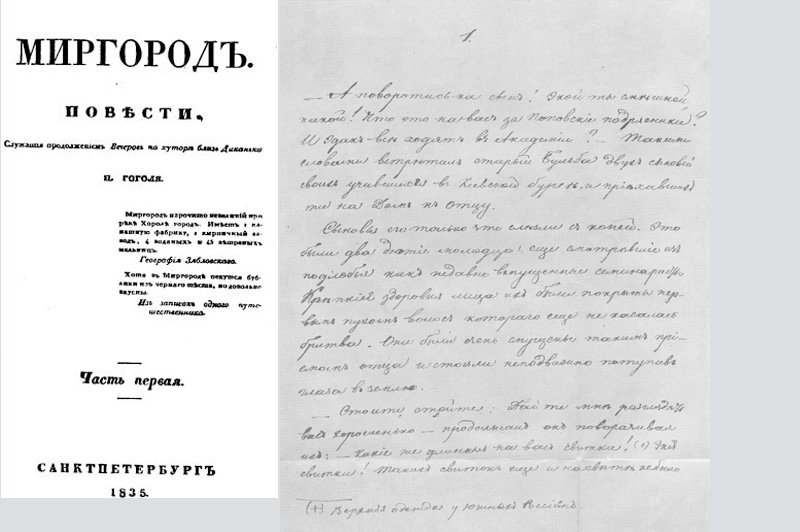 МИРГОРОДЪ.
ПОВѢСТИ,
Служащія продолженіемъ Вечеровъ на хуторѣ близъ Диканьки
Н. ГОГОЛЯ.
Миргородъ нарочито невеликій при
рѣкѣ Хоролѣ городъ. Имѣетъ 1 ка-
натную фабрику, 1 кирпичный за-
водъ, 4 водяныхъ и 45 вѣтряныхъ
мельницъ.
Географія Зябловскаго.
Хотя въ Миргородѣ пекутся буб-
лики изъ чернаго тѣста, но довольно
вкусны.
Изъ записокъ одного путе-
шественника.
Часть первая.
САНКТПЕТЕРБУРГЪ
1835.
1.
— А поворотись-ка сынъ! Экой ты смѣшной
какой! Что это на васъ за поповскіе подрясники?
И эдакъ всѣ ходятъ в Академіи? — Такими
словами встрѣтилъ старый Бульба двухъ сыновей
своихъ учившихся в Кіевской бурсѣ и пріѣхавшихъ
уже на домъ къ отцу.
Сыновья его только что слѣзли съ коней. Это
были два дюжіе молодца, еще смотрѣвшіе из
подлобья какъ недавно выпущенные семинаристы.
Крѣпкія здоровыя лица ихъ были покрыты пер-
вымъ пухомъ волосъ котораго еще не касалась
бритва. Они были очень смущены такимъ прі-
емомъ отца и стояли неподвижно потупивъ
глаза в землю.
— Стойте, стойте! Дайте мнѣ разглядѣть
васъ хорошенько — продолжалъ онъ поворачивая
ихъ; — какіе же длинныя на васъ свитки! (1) Экія
свитки! Такихъ свитокъ еще и на свѣтѣ не было
(1) Верхняя одежда у южныхъ Россіянъ.